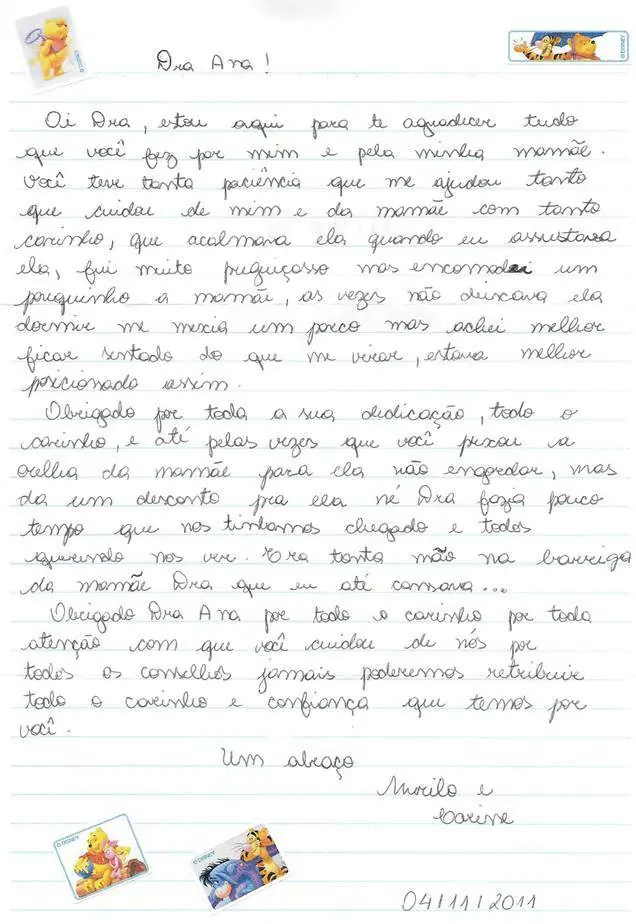 Dra Ana!
Oi Dra, estou aqui para te agradecer tudo
que você fez por mim e pela minha mamãe.
Você teve tanta paciência que me ajudou tanto
que cuidou de mim e da mamãe com tanto
carinho, que acalmava ela quando eu assustava
ela, fui muito preguiçosso mas encomodei um
pouquinho a mamãe, as vezes não deixava ela
dormir me mexia um pouco mas achei melhor
ficar sentado do que me virar, estava melhor
posicionado assim.
Obrigado por toda a sua dedicação, todo o
carinho, e até pelas vezes que você puxou a
orelha da mamãe para ela não engordar, mas
da um desconto pra ela né Dra fazia pouco
tempo que nos tinhamos chegado e todos
querendo nos ver. Era tanta mão na barriga
da mamãe Dra que eu até cansava...
Obrigado Dra Ana por todo o carinho por toda
atenção com que você cuidou de nós por
todos os conselhos jamais poderemos retribuir
todo o carinho e confiança que temos por
você.
Um abraço
Murilo e
Carine
04/11/2011
©DISNEY
©DISNEY
©DISNEY